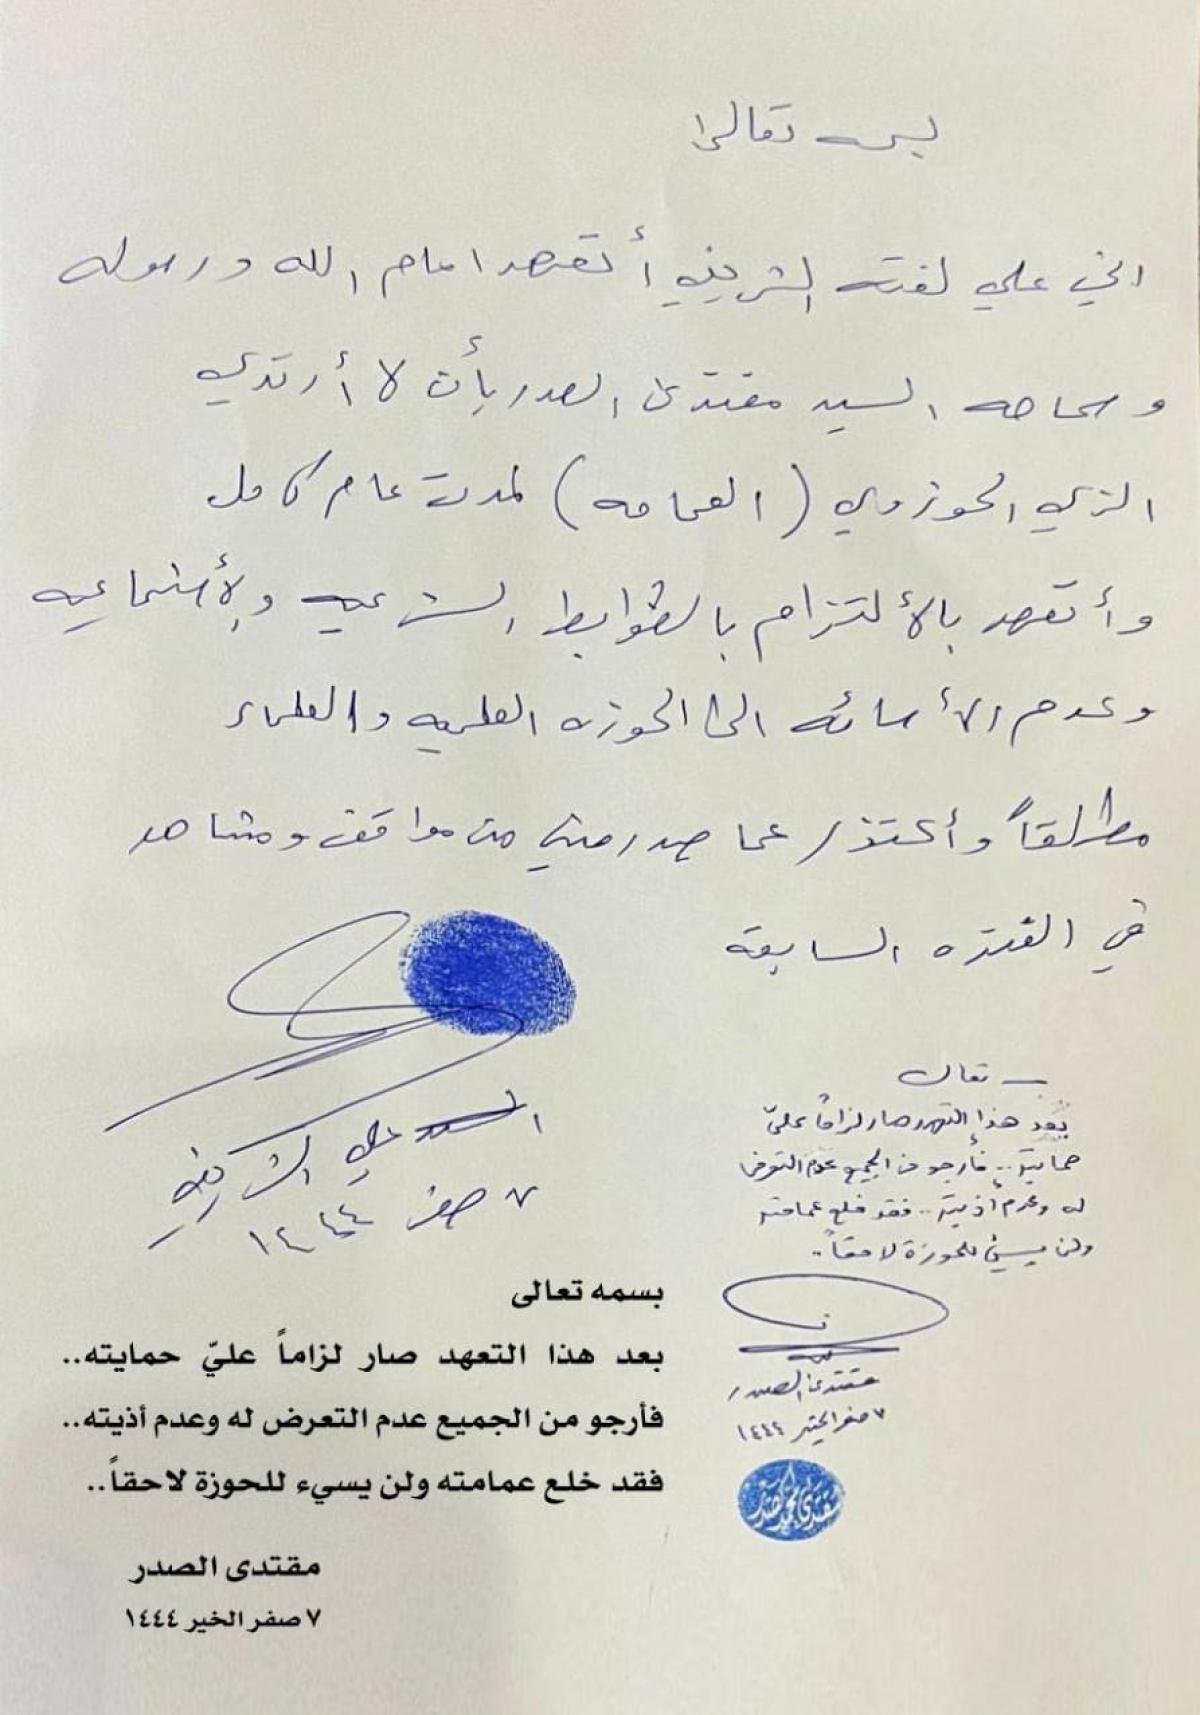 بسمه تعالى
اني علي لفته الشريفي أتعهد امام الله ورسوله
وسماحه السيد مقتدى الصدر بأن لا أرتدي
الزي الحوزوي (العمامه) لمدت عام كامل
وأتعهد بالألتزام بالضوابط الشرعيه والأجتماعيه
وعدم الأسائه الى الحوزه العلميه والعلماء
مطلقاً وأعتذر عما صدر مني من مواقف ومشاهد
في الفتره السابقه
علي الشريفي
٧ صفر ١٤٤٤
بسمه تعالى
بعد هذا التعهد صار لزاماً عليّ
حمايته.. فأرجو من الجميع عدم التعرض
له وعدم أذيته.. فقد خلع عمامته
ولن يسيء للحوزة لاحقاً..
مقتدى الصدر
٧ صفر الخير ١٤٤٤
بسمه تعالى
بعد هذا التعهد صار لزاماً عليّ حمايته..
فأرجو من الجميع عدم التعرض له وعدم أذيته..
فقد خلع عمامته ولن يسيء للحوزة لاحقاً..
مقتدى الصدر
٧ صفر الخير ١٤٤٤